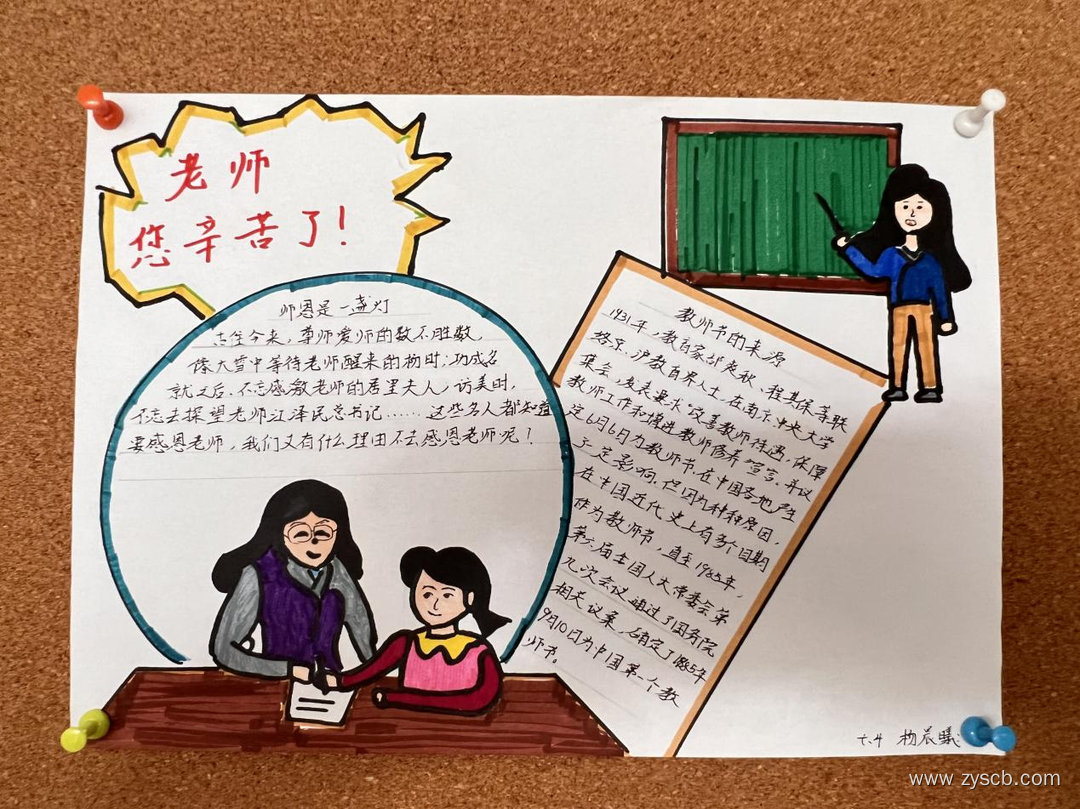 老师
您辛苦了!
师恩是一盏灯
古往今来,尊师爱师的数不胜数
像大雪中等待老师醒来的杨时;功成名
就之后,不忘感激老师的居里夫人;访美时,
不忘去探望老师江泽民总书记……这些名人都知道
要感恩老师,我们又有什么理由不去感恩老师呢!
教师节的来源
1931年,教育家邰爽秋、程其保等联
络京、沪教育界人士,在南京中央大学
集会,发表要求"改善教师待遇,保障
教师工作和增进教师修养"宣言,并议
定6月6日为教师节,在中国各地产生
了一定影响。但因为种种原因,
在中国近代史上有多个日期
作为教师节,直至1985年,
第六届全国人大常委会第
九次会议通过了国务院
相关议案,确定了1985年
9月10日为中国第一个教
师节。
七.4 杨晨曦
www.zyscb.com